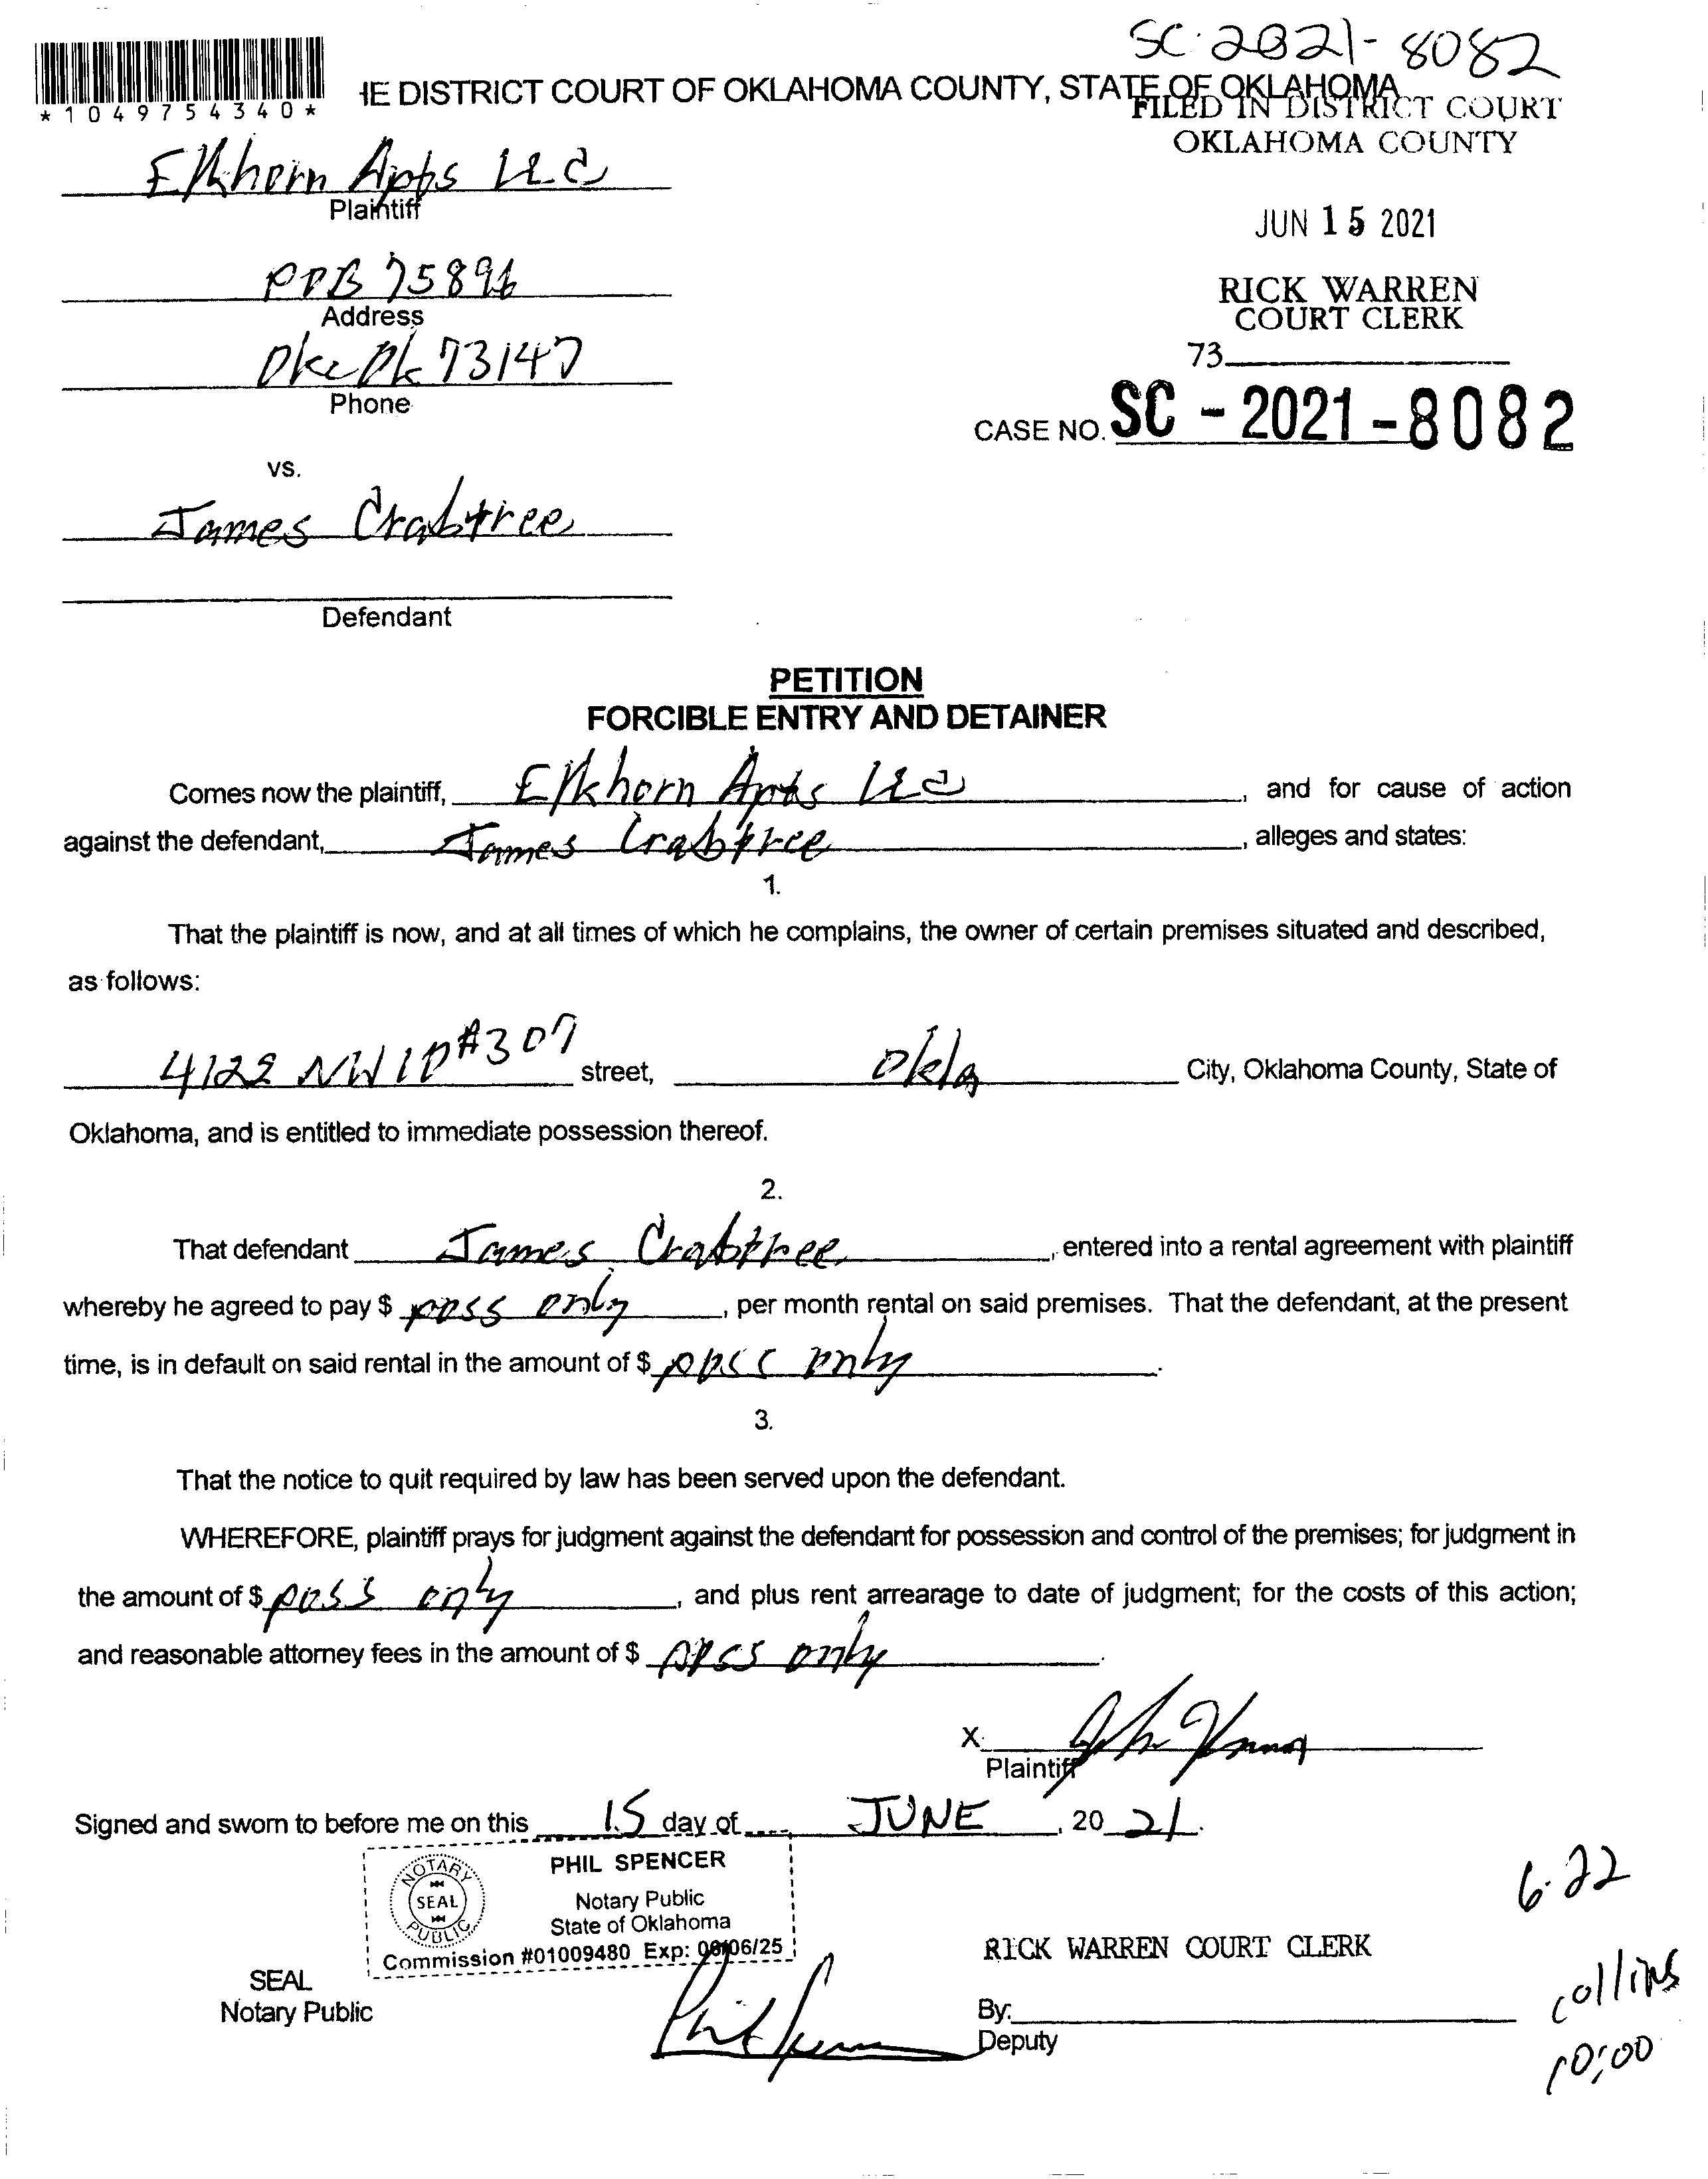 SC-2021-8082
*1049754340*
IE DISTRICT COURT OF OKLAHOMA COUNTY, STATE OF OKLAHOMA
FILED IN DISTRICT COURT
OKLAHOMA COUNTY
Elkhorn Apts LLC
Plaintiff
JUN 15 2021
POB 75896
Address
RICK WARREN
COURT CLERK
Okc Ok 73147
Phone
73
CASE NO. SC - 2021 - 8082
vs.
James Crabtree
Defendant
PETITION
FORCIBLE ENTRY AND DETAINER
Comes now the plaintiff, Elkhorn Apts LLC, and for cause of action
against the defendant, James Crabtree, alleges and states:
1.
That the plaintiff is now, and at all times of which he complains, the owner of certain premises situated and described,
as follows:
4122 NW 10 #307 street, Okla City, Oklahoma County, State of
Oklahoma, and is entitled to immediate possession thereof.
2.
That defendant James Crabtree, entered into a rental agreement with plaintiff
whereby he agreed to pay $ poss only, per month rental on said premises. That the defendant, at the present
time, is in default on said rental in the amount of $ poss only.
3.
That the notice to quit required by law has been served upon the defendant.
WHEREFORE, plaintiff prays for judgment against the defendant for possession and control of the premises; for judgment in
the amount of $ poss only, and plus rent arrearage to date of judgment; for the costs of this action;
and reasonable attorney fees in the amount of $ poss only.
X
Plaintiff
Signed and sworn to before me on this 15 day of JUNE, 20 21.
NOTARY PUBLIC SEAL
PHIL SPENCER
Notary Public
State of Oklahoma
Commission #01009480 Exp: 06/25
6-22
RICK WARREN COURT CLERK
SEAL
Notary Public
Phil Spencer
collins
By:
Deputy
10:00